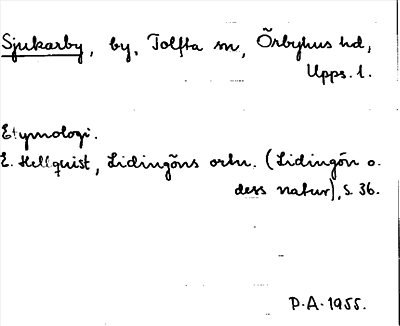 Sjukarby, by, Tolfta sn, Örbyhus hd,
Upps. l.
Etymologi.
E. Hellquist, Lidingöns ortn. (Lidingön o.
dess natur), s. 36.
P.A. 1955.